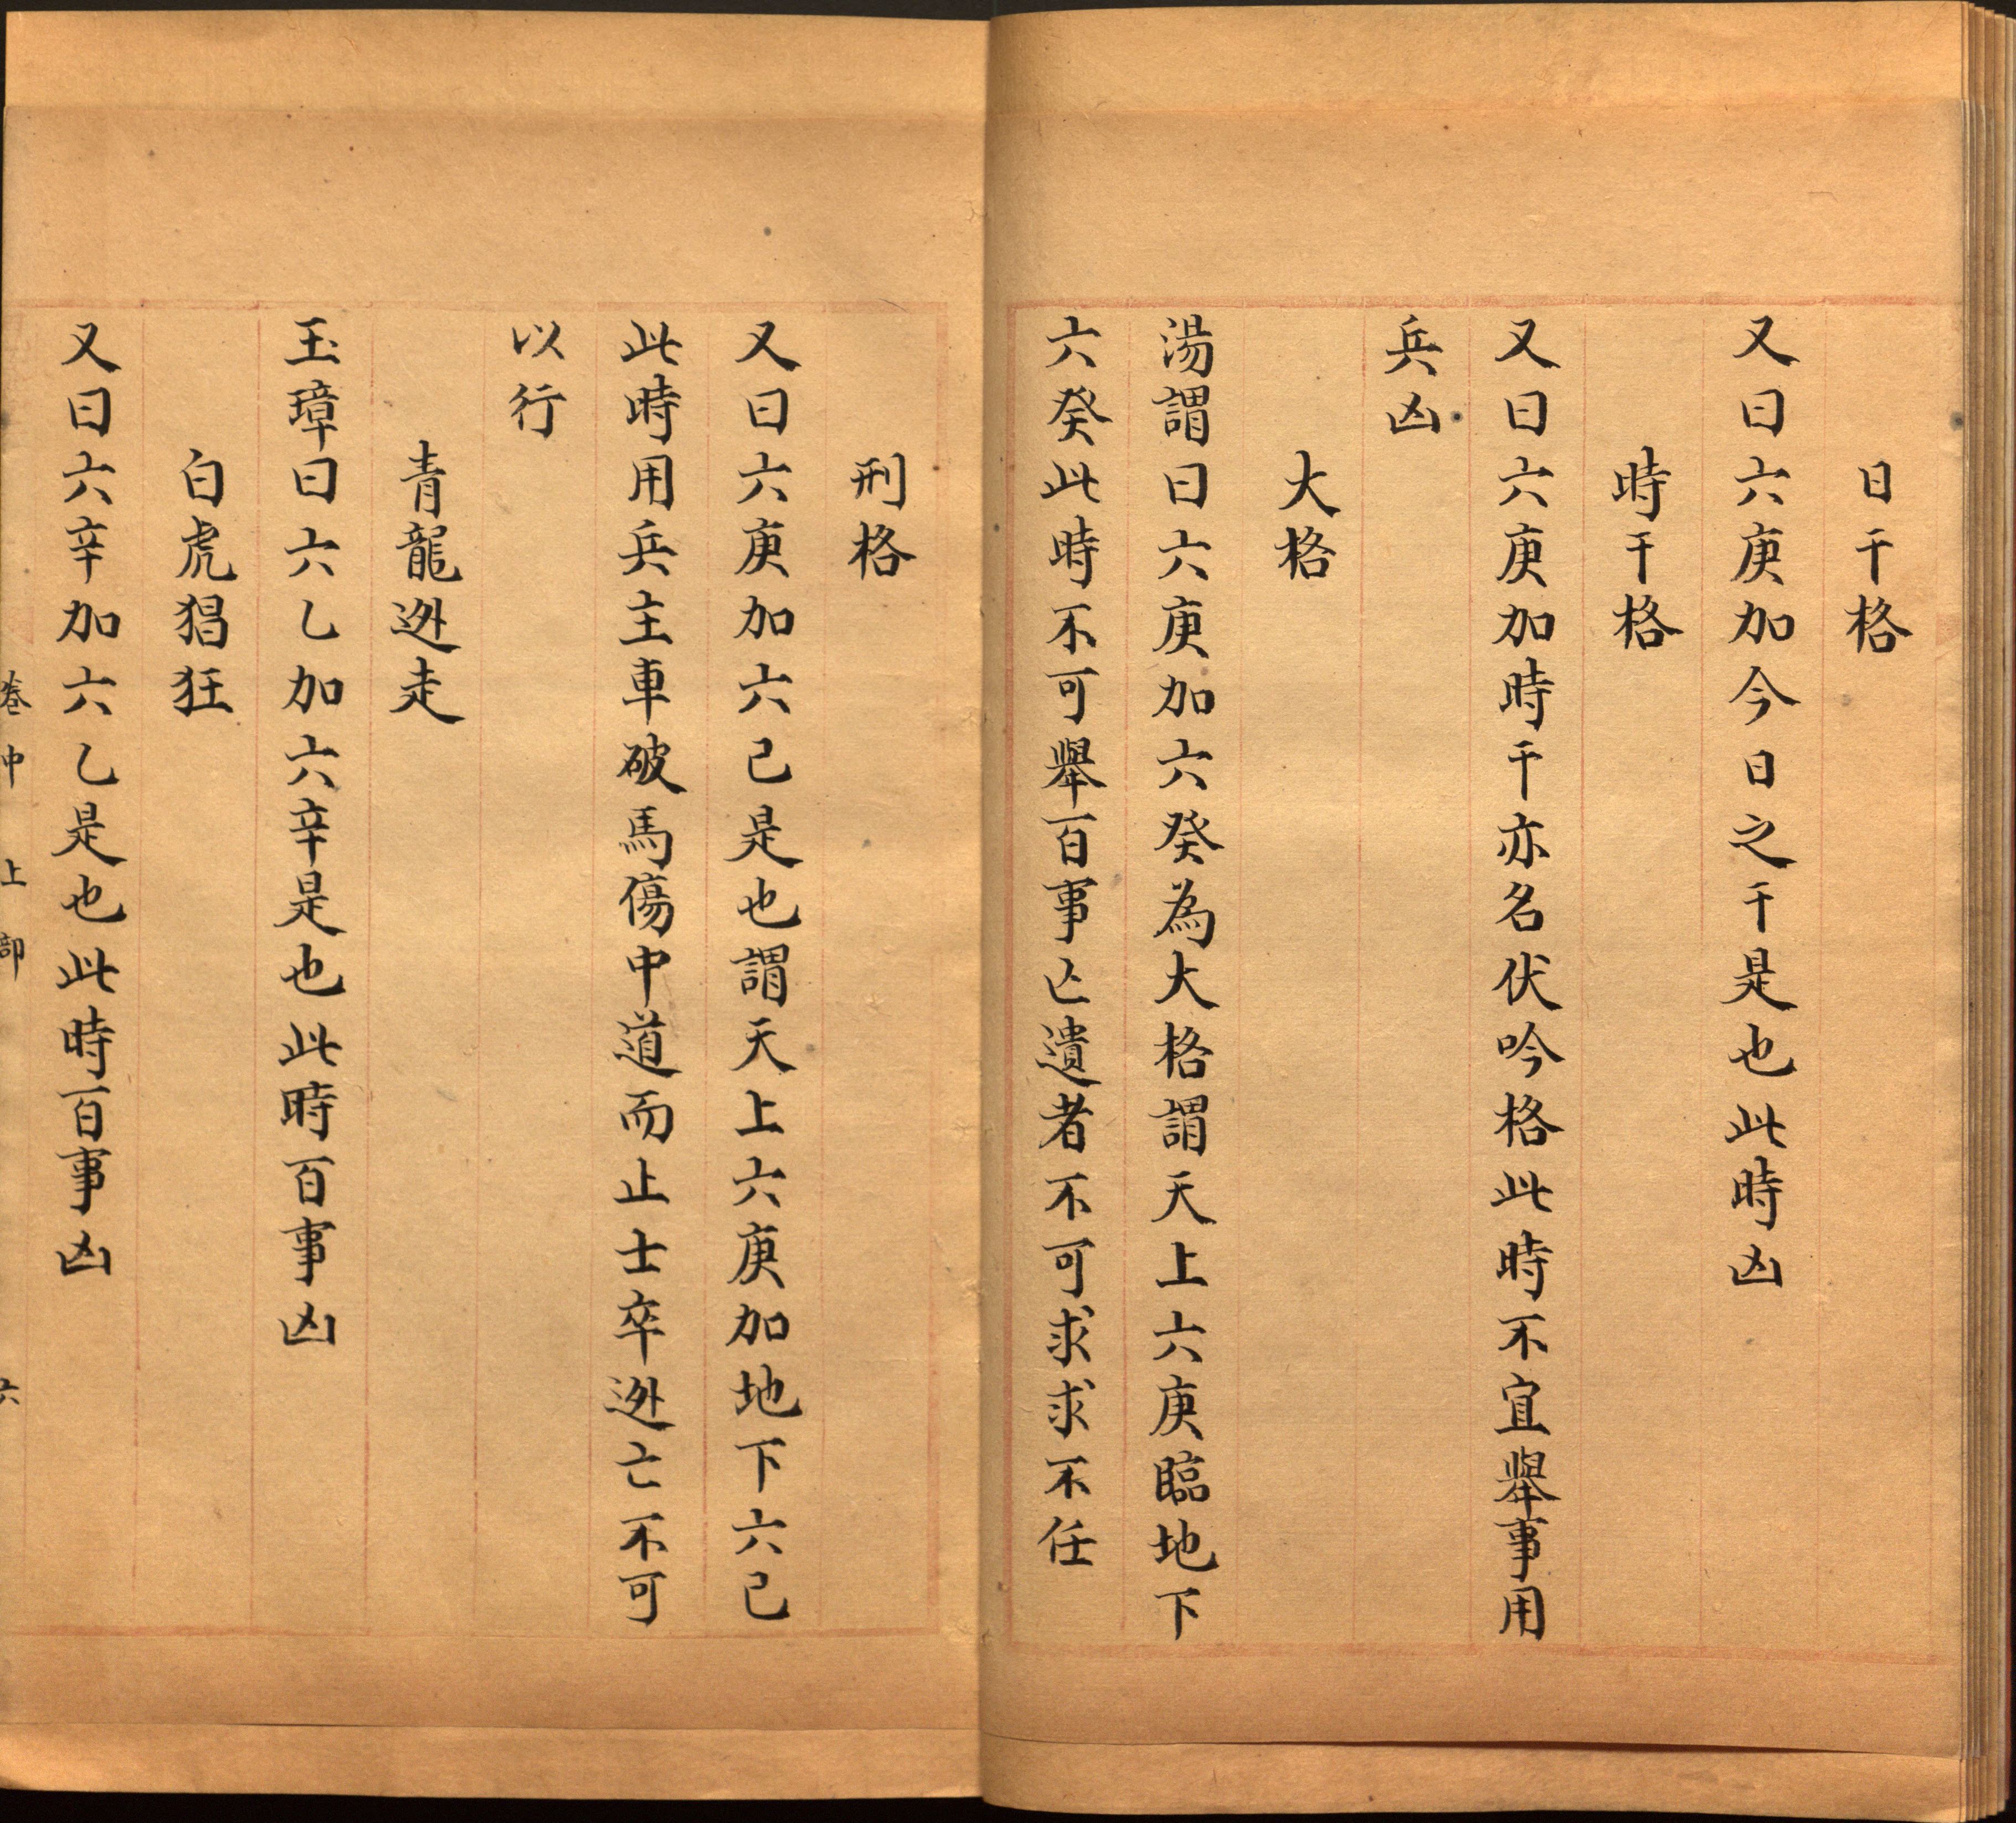 日干格
又曰六庚加今日之干是也此時凶
時干格
又曰六庚加時干亦名伏吟格此時不宜舉事用
兵凶
大格
湯謂曰六庚加六癸為大格謂天上六庚臨地下
六癸此時不可舉百事亾遺者不可求求不任
刑格
又曰六庚加六己是也謂天上六庚加地下六己
此時用兵主車破馬傷中道而止士卒迯亡不可
以行
青龍迯走
玉璋曰六乙加六辛是也此時百事凶
白虎猖狂
又曰六辛加六乙是也此時百事凶
卷中 上部 六